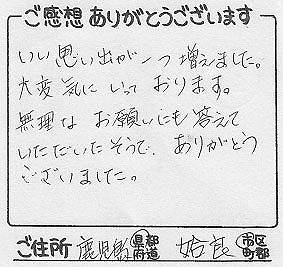 ご感想ありがとうございます
いい思い出が一つ増えました。
大変気にいって おります。
無理な お願いにも答えて
いただいたそうで、ありがとう
ございました。
ご住所 鹿児島 県都府道 姶良 市区町郡